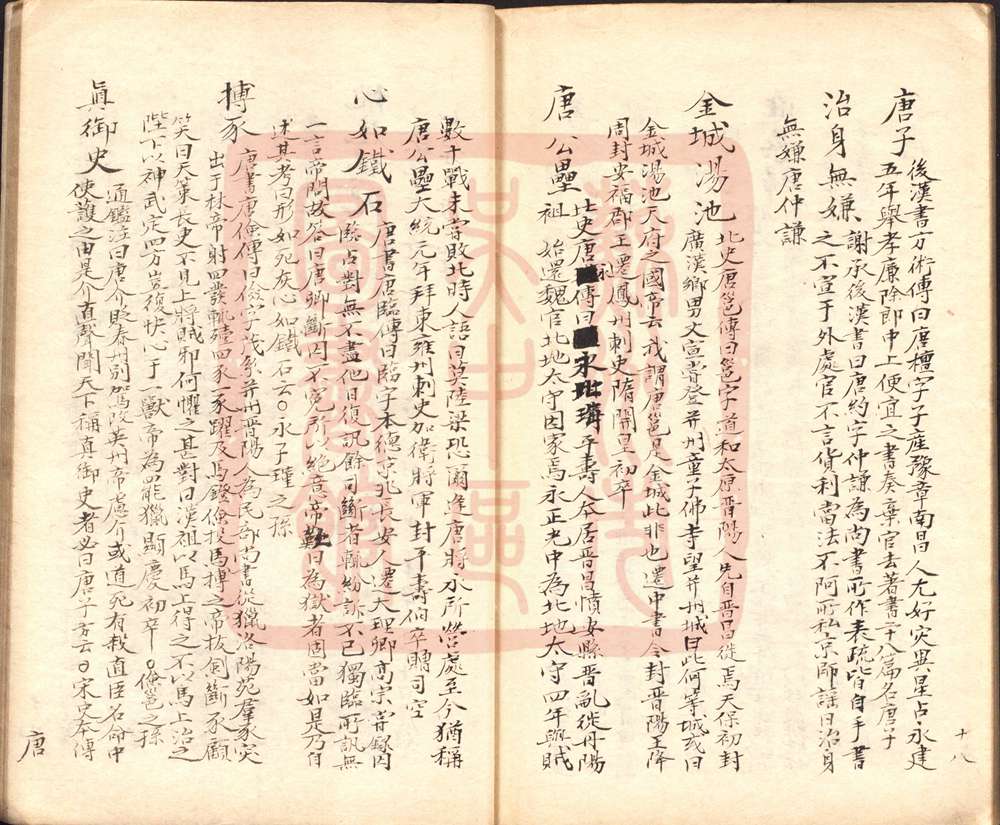 唐子 後漢書方術傳曰唐檀字子產豫章南昌人尤好災異星占永建
五年舉孝廉除郎中上便宜之書奏棄官去著書二十八篇名唐子
治身無嫌 謝承後漢書曰唐約字仲謙為尚書所作表疏皆自手書
之不宣于外處官不言貨利當法不阿所私京師謠曰治身
無嫌唐仲謙
金城湯池 北史唐邕傳曰邕字道和太原晉陽人先自晉昌徙焉天保初封
廣漢鄉男文宣嘗登并州童子佛寺望并州城曰此何等城或曰
金城湯池天府之國帝云我謂唐邕是金城此非也遷中書令封晉陽王降
周封安福郡王遷鳳州刺史隋開皇初卒
唐公壘 北史唐永傳曰永北海平壽人本居晉昌憤安縣晉亂徙丹陽
祖 始還魏官北地太守因家焉永正光中為北地太守四年與賊
數十戰未嘗敗北時人語曰莫陸梁恐爾逢唐將永所營處至今猶稱
唐公壘大統元年拜東雍州刺史加衛將軍封平壽伯卒贈司空
心如鐵石 唐書唐臨傳曰臨字本德京兆長安人遷大理卿高宗嘗錄囚
臨占對無不盡他日復訊餘司斷者輒紛訴不已獨臨所訊無
一言帝問故答曰唐卿斷囚不冤所以絕意帝歎曰為獄者固當如是乃自
述其考曰形如死灰心如鐵石云○永子瑾之孫
搏豕 唐書唐儉傳曰儉字茂系并州晉陽人為民部尚書從獵洛陽苑羣豕突
出于林帝射四發輒殪四豕一豕躍及馬鐙儉投馬搏之帝拔劍斷豕顧
笑曰天策長史不見上將賊邪何懼之甚對曰漢祖以馬上得之不以馬上治之
陛下以神武定四方豈復快心于一獸帝為罷獵顯慶初卒○儉邕之孫
眞御史 通鑑注曰唐介貶春州別駕改英州帝慮介或道死有殺直臣名命中
使護之由是介直聲聞天下稱真御史者必曰唐子方云○宋史本傳
十八
唐